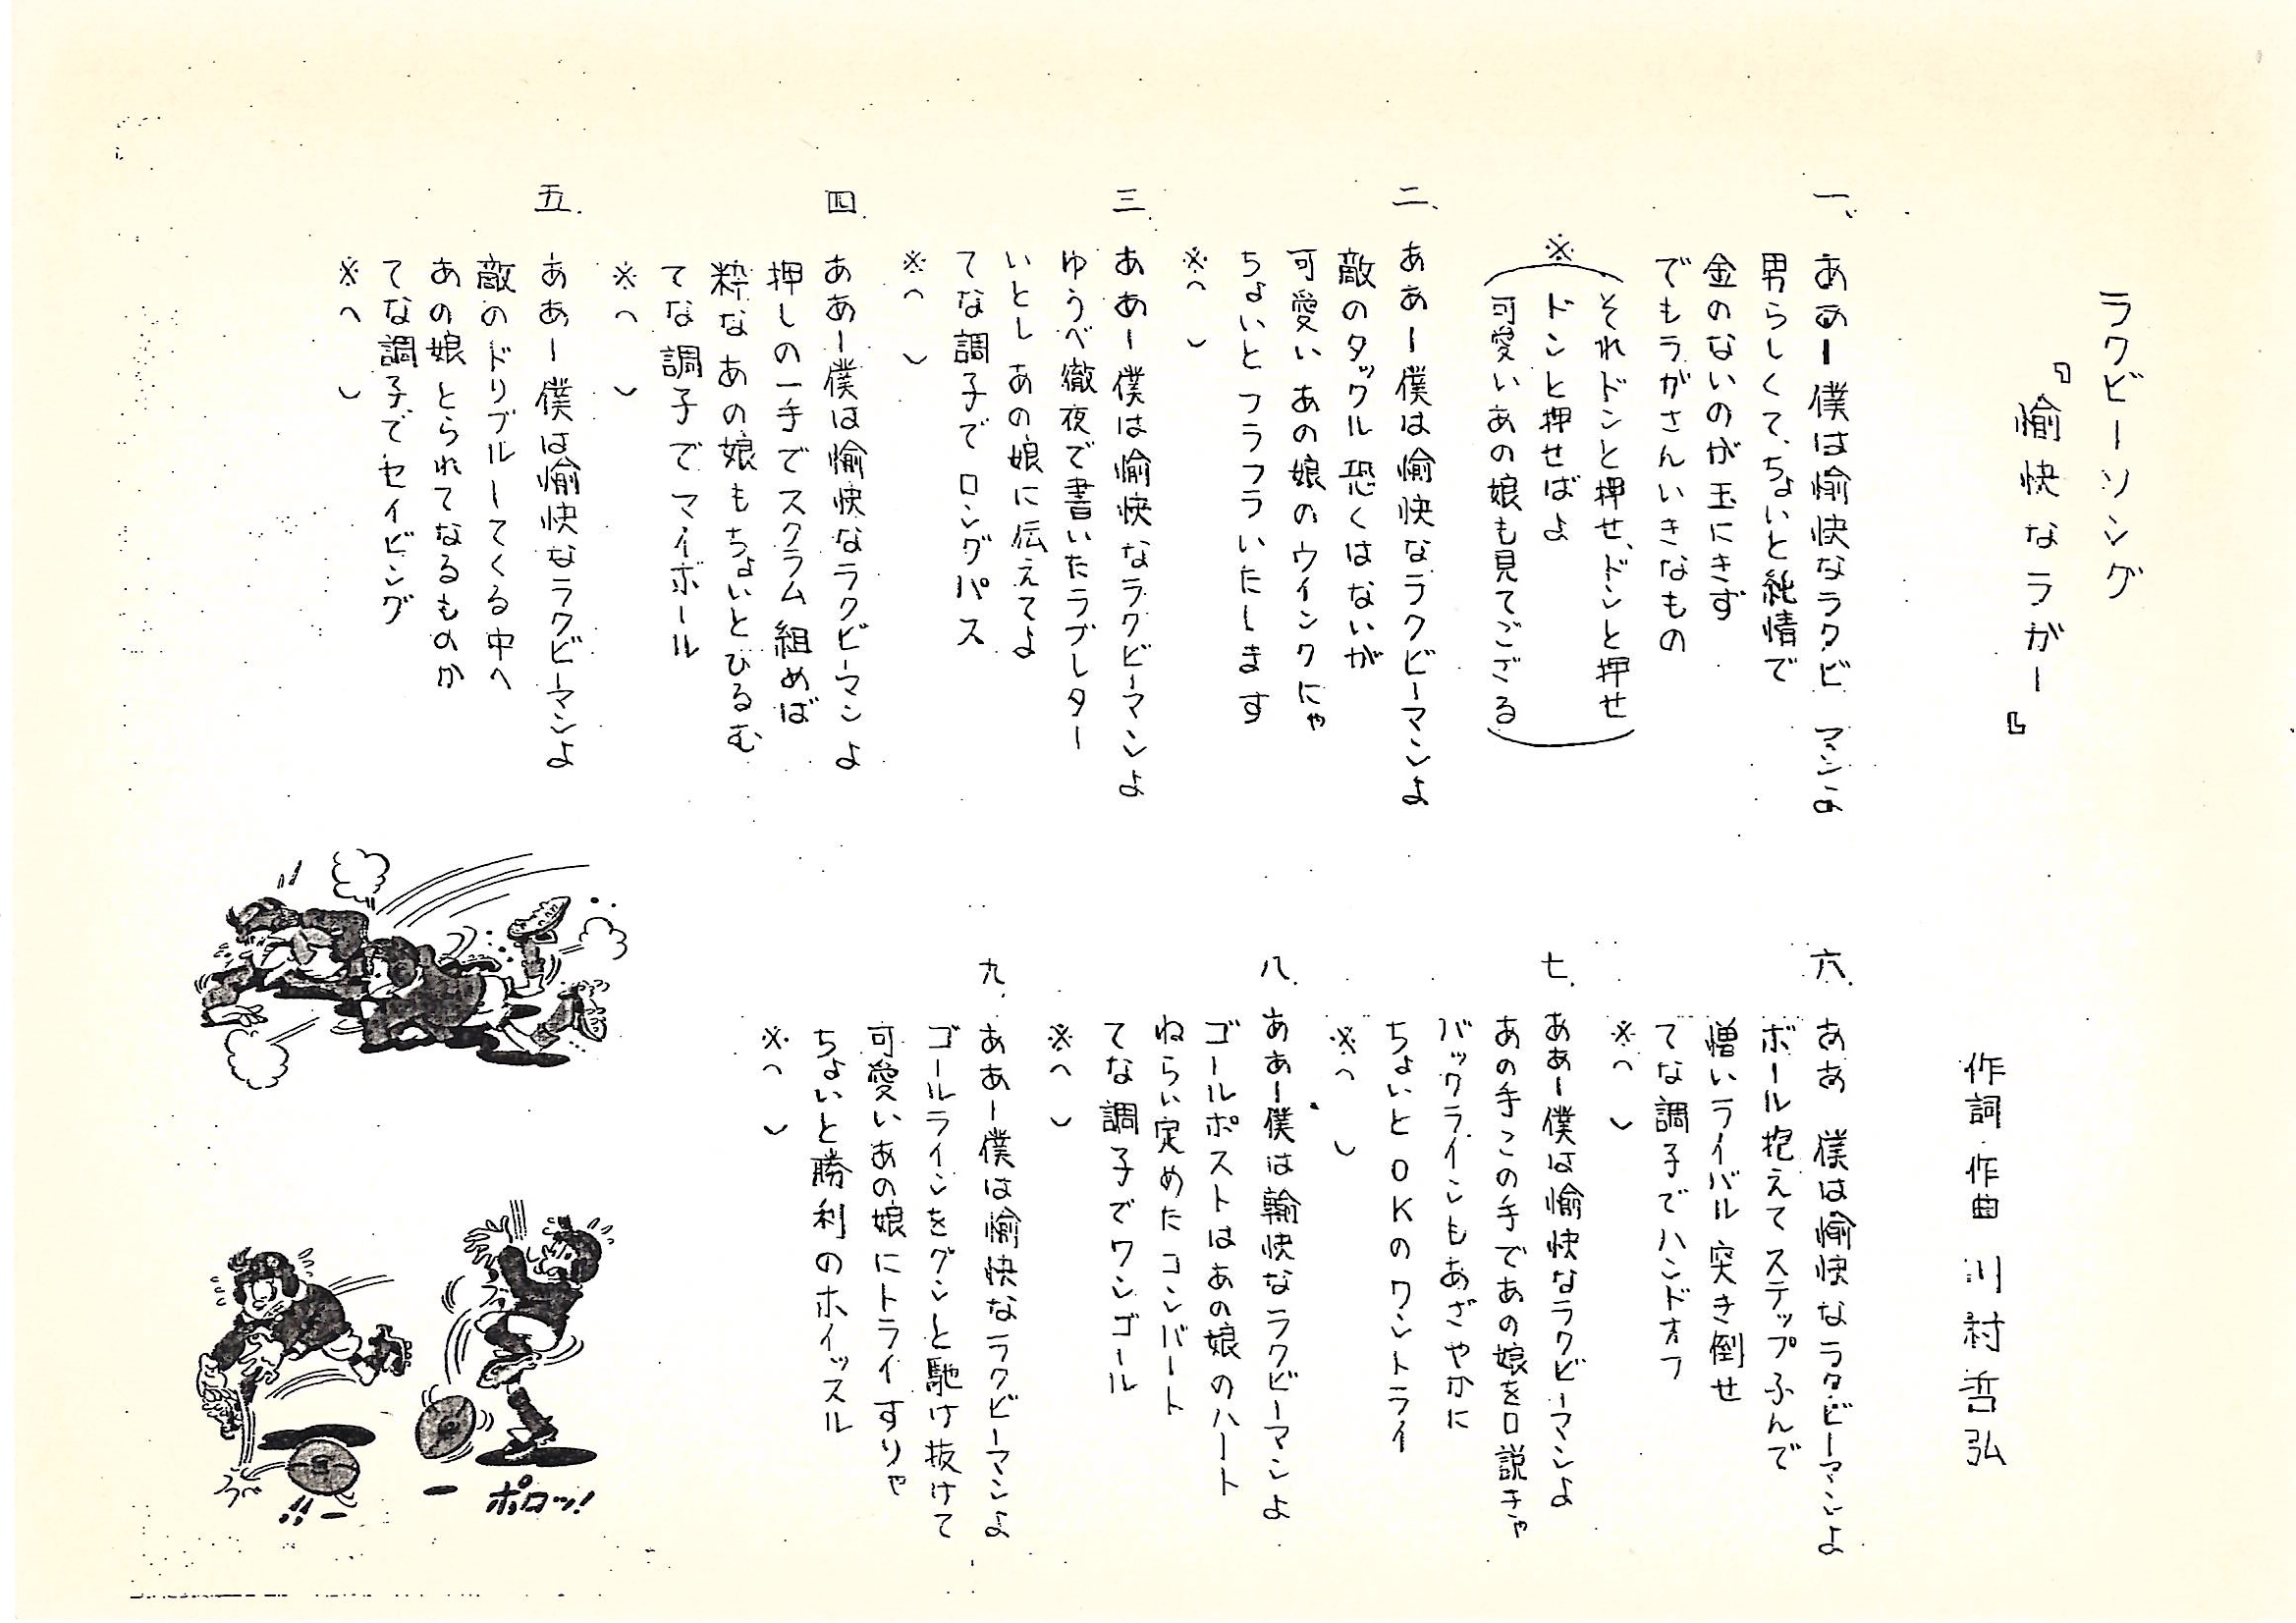 ラグビーソング
『愉快なラガー』
作詞・作曲 川村哲弘
一、ああー僕は愉快なラグビーマンよ
男らしくて、ちょいと純情で
金のないのが玉にきず
でもラガさんいきなもの
※(それドンと押せ、ドンと押せ
ドンと押せばよ
可愛いあの娘も見てござる)
二、ああー僕は愉快なラグビーマンよ
敵のタックル恐くはないが
可愛いあの娘のウインクにゃ
ちょいとフラフラいたします
※( )
三、ああー僕は愉快なラグビーマンよ
ゆうべ徹夜で書いたラブレター
いとしあの娘に伝えてよ
てな調子でロングパス
※( )
四、ああー僕は愉快なラグビーマンよ
押しの一手でスクラム組めば
粋なあの娘もちょいとひるむ
てな調子でマイボール
※( )
五、ああー僕は愉快なラグビーマンよ
敵のドリブルーてくる中へ
あの娘とられてなるものか
てな調子でセイビング
※( )
六、ああ 僕は愉快なラグビーマンよ
ボール抱えてステップふんで
憎いライバル突き倒せ
てな調子でハンドオフ
※( )
七、ああー僕は愉快なラグビーマンよ
あの手この手であの娘を口説きゃ
バックラインもあざやかに
ちょいとOKのワントライ
※( )
八、ああー僕は輸快なラグビーマンよ
ゴールポストはあの娘のハート
ねらい定めたコンバート
てな調子でワンゴール
※( )
九、ああー僕は愉快なラグビーマンよ
ゴールラインをグンと馳け抜けて
可愛いあの娘にトライすりゃ
ちょいと勝利のホイッスル
※( )
ポロッ!